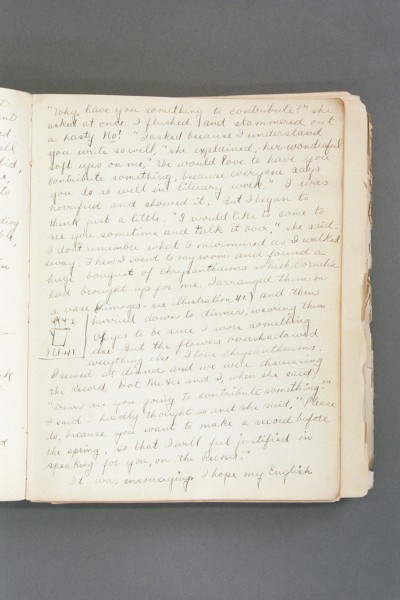 "Why, have you something to contribute?" she
asked at once. I flushed and stammered out
a hasty No! "I asked because I understand
you write so well," she explained, her wonderful
soft eyes on me, "We would love to have you
contribute something, because everyone says
you do so well in literary work." I was
horrified and showed it. But I began to
think just a little. "I would like to come to
see you sometime and talk it over," she said.
I don't remember what I murmured as I walked
away. Then I went to my room and found a
huge bouquet of chrysanthemums which Cornelia
had brought up for me. I arranged them in
a vase (see illustration #1) and then
hurried down to dinner, wearing them
to be sure I wore something
else. But the flowers overshadowed
everything else. I love chrysanthemums.
I at dinner and we were discussing
the Record, and I, when she said
are you going to contribute something?"
I said I hardly thought so and she said, "Please
do, because you want to make a record before
the spring, so that I will feel justified in
speaking for you, on the Record."
It was encouraging. I hope my English